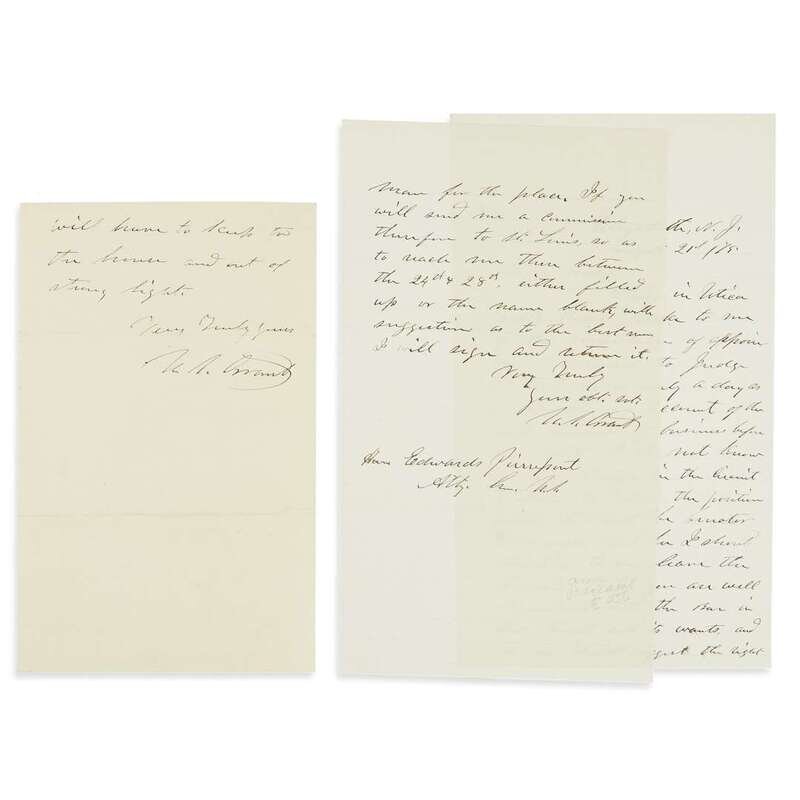 will have to keep to
the house and out of
strong light.
Very Truly yours
U. S. Grant
man for the place. If you
will send me a commission
therefore to St. Louis, so as
to reach me there between
the 24th & 28th, either filled
up or the name blank, with
suggestion as to the best man
I will sign and return it.
Very Truly
Your obt. svt.
U. S. Grant
Hon. Edwards Pierrepont
Atty. Gen. U.S.
N. J.
21st /75
in Utica
to me
of appoin
to Judge
a day as
of the
business before
not know
in the Circuit
the position
senator
I should
leave the
are well
the Bar in
wants, and
the right